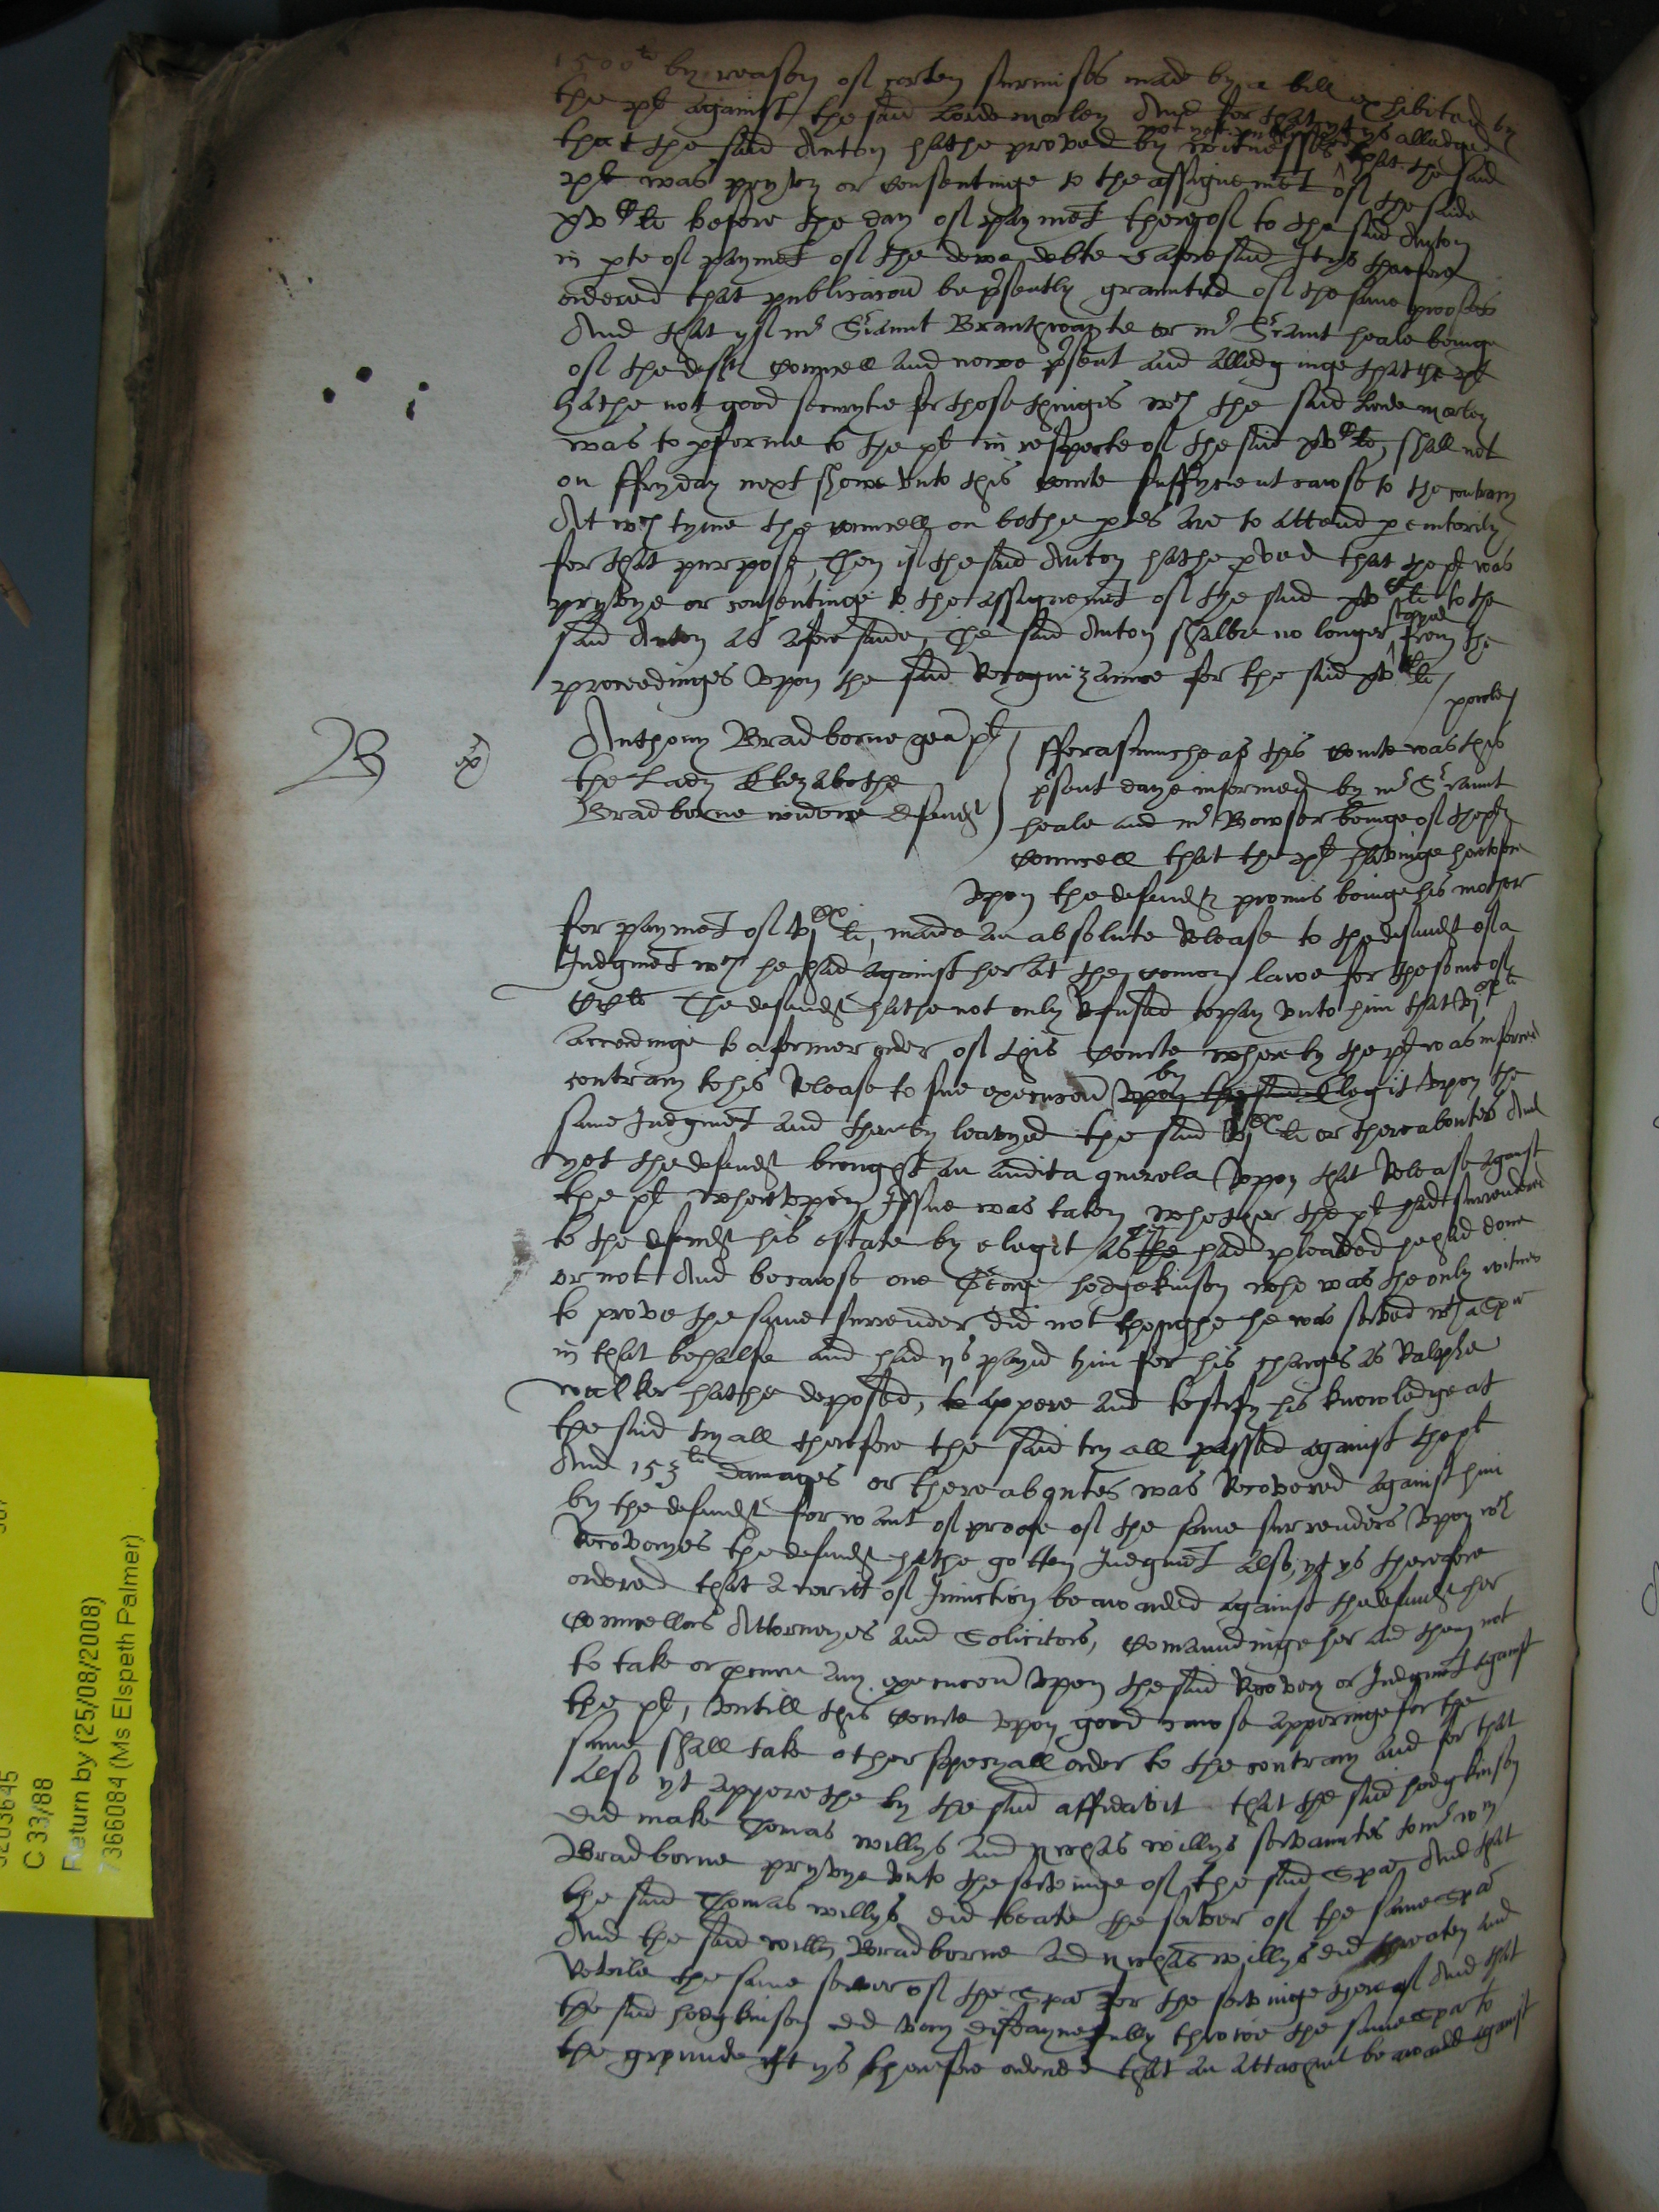 1500li by reason of certen surmises made by a bill exhibited by
the plt against the said Lorde morley And for that yt ys alledged
that the said Anton hathe proved by witnesses not yet published that the said
plt was pryvy or consentinge to the assignemet of the saide
xvCli before the day of paymet thereof to the said Anton
in pte of paymet of the dewe debte aforesaid Yt ys therefore
ordered that publicacon be psently graunted of the same proofes
And that yf mr Sriaunt Branthwayte or mr Sriaunt heale beinge
of the deft Councell and nowe psent and alledginge that the plt
hathe not good securytie for those thinges wch the said Lorde morley
was to pforme to the plt in respecte of the said xvCli, shall not
on ffryday next shewe unto this Courte suffycient cawse to the contrary
At wch tyme the councell on bothe ptes are to attend pemtorily
for that purpose, Then if the said Anton hathe pved that the plt was
pryvye or consentinge to the assignemet of the said xvCli to the
said Anton as aforesaide, The said Anton shalbe no longer stayed from the
proceedinges upon the said Recognizaunce for the said xvCli
powle
B
Anthony Bradborne gen plt
the Lady Elizabethe
Bradborne widowe defendt
fforasmuche as this Courte was this
psent daye informed by mr Sriaunt
heale and mr Bowser beinge of the plt
Councell that the plt havinge heretofore
upon the defendt promis beinge his mother
for paymet of vjxxli, made an absolute Release to the defendt of a
Judgmet wch he had against her at the comon lawe for the some of
CCli The defendt hathe not only Refused to pay unto him that vjxxli
accordinge to a former order of this Courte whereby the plt was inforced
contrary to his Release to sue execucon by upon the said Elegit upon the
same Judgmet and thereby leavyed the said vjxxli or thereaboutes And
yet the defendt brought an audita querela upon that Release against
the plt whereupon Issue was taken whether the plt had surrendered
to the defendt his estate by elegit as he had pleaded he had done
or not And becawse one George hodgekinson who was the only witnes
to prove the same surrender did not thoughe he was served wth a Spa
in that behalfe and had ijs payd him for his charges as Ralphe
walker hathe deposed, to appere and testify his knowledge at
the said tryall therefore the said tryall passed against the plt
And 153li damages or thereaboutes was Recovered against him
by the defendt for want of proofe of the same surrenders upon wch
Recoveryes the defendt hathe gotten Judgmet also, yt ys therefore
ordered that a writt of Iniunction be awarded against the defendt her
Councellors Attorneyes and Solicitors, Comaundinge her and them not
to take or pcure any execucon upon the said Recovery or Judgmet against
the plt, untill this Courte upon good cawse apperinge for the
same shall take other specyall order to the contrary and for that
also yt apperethe by the said affidavit that the said hodgkinson
did make Thomas willys and nichas willys servauntes to mr wm
Bradborne pryvye unto the servinge of the said Spa And that
the said Thomas willys did beate the server of the same Spa
And the said willm Bradborne and nichas willys did threaten and
Revile the same server of the Spa for the servinge thereof And that
the said hodgkinson did very disdaynefully throwe the same Spa to
the grounde yt ys therefore ordered that an attachmt be awarded against
C 33/88
Return by (25/08/2008)
7366084 (Ms Elspeth Palmer)